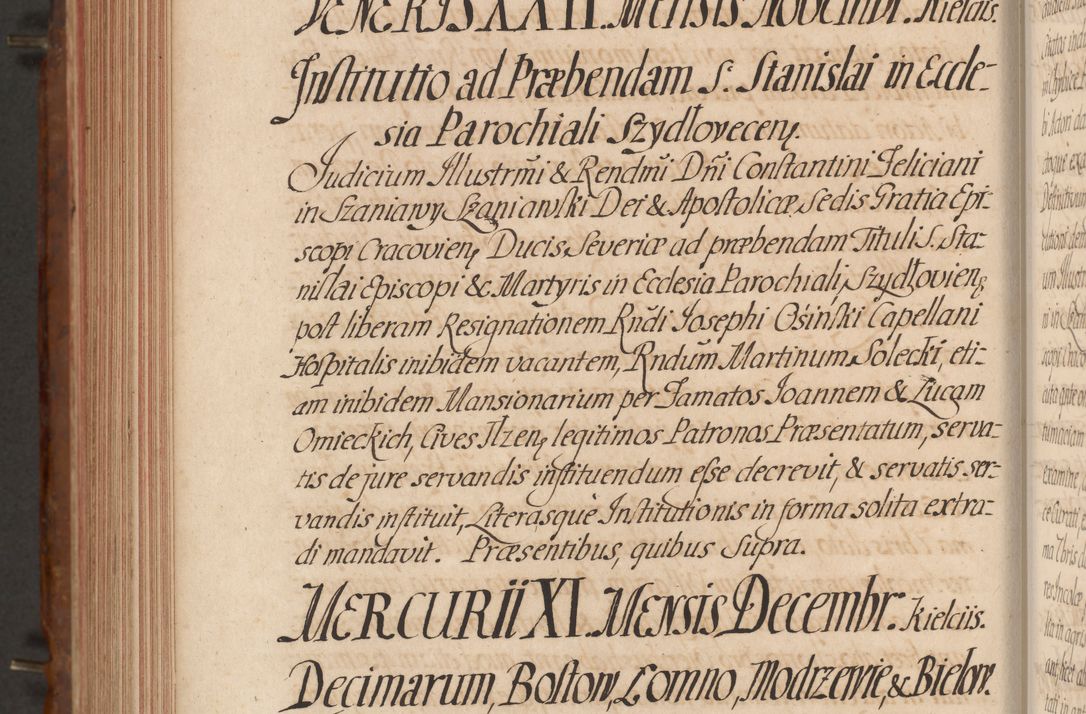 VENERIS XXII. Mensis Novembr. Kielciis.
Institutio ad Præbendam S: Stanislai in Eccle-
sia Parochiali Szydłovecen̨.
Judicium Illustrm̃i & Rendm̃i Dñi Constantini Feliciani
in Szaniawy Szaniawski Dei & Apostolicæ Sedis Gratia Epi-
scopi Cracovien̨ Ducis Severiæ ad præbendam Tituli S. Sta-
nislai Episcopi & Martyris in Ecclesia Parochiali Szydłovien̨
post liberam Resignationem Rñdi Josephi Osiński Capellani
Hospitalis inibidem vacantem, Rndũm Martinum Solecki, eti-
am inibidem Mansionarium per Famatos Joannem & Lucam
Omieckich, Cives Ilzen̨ legitimos Patronos Præsentatum, serva-
tis de jure servandis instituendum esse decrevit, & servatis ser-
vandis instituit, Literasquè Institutionis in forma solita extra-
di mandavit. Præsentibus, quibus supra.
MERCURII XI. Mensis Decembr. Kielciis.
Decimarum, Bostow, Łomno, Modrzewie, & Bielow.